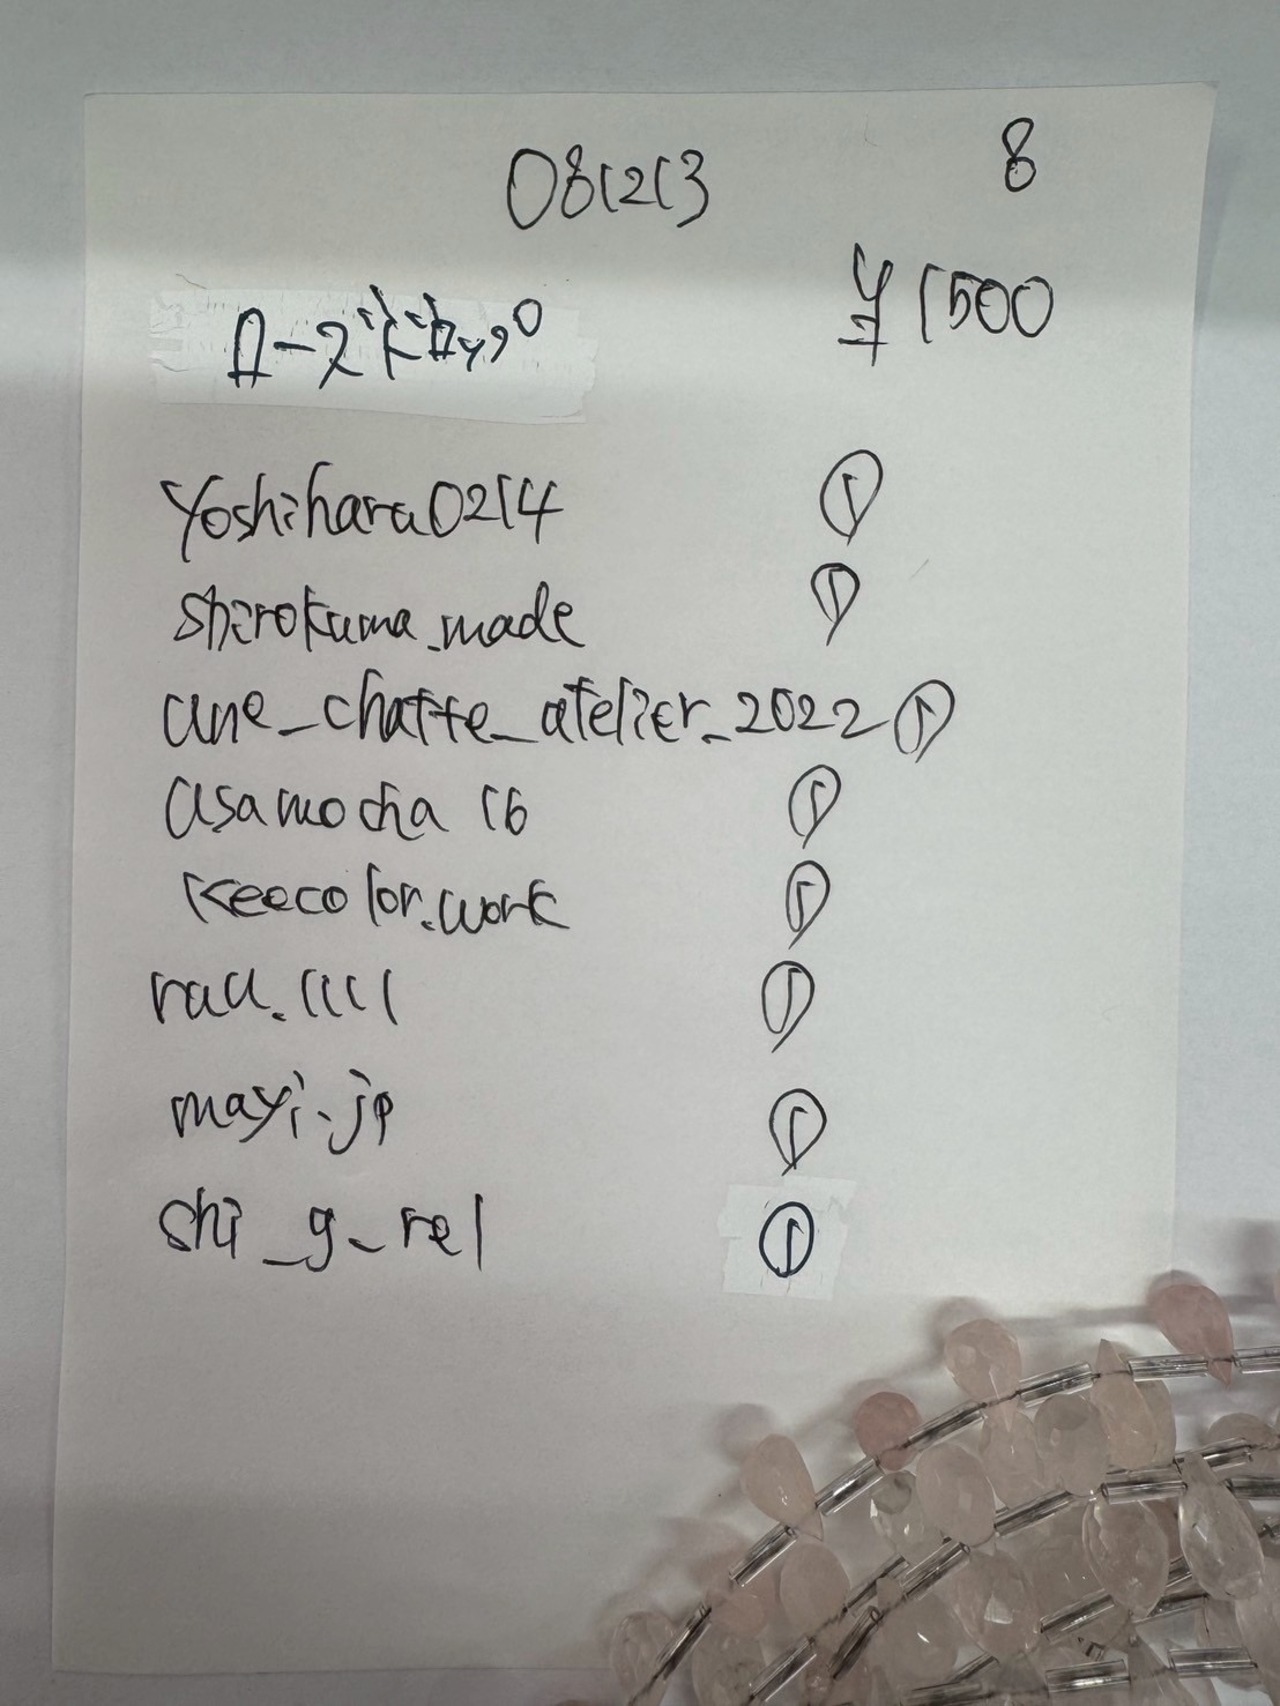 081213 8
¥1500
ローズドロップ
yoshihara0214 ①
shirokuma_made ①
une_chatte_atelier_2022 ①
asamocha 16 ①
keecolor.work ①
rau.1111 ①
mayi.jp ①
shi_g_rel ①